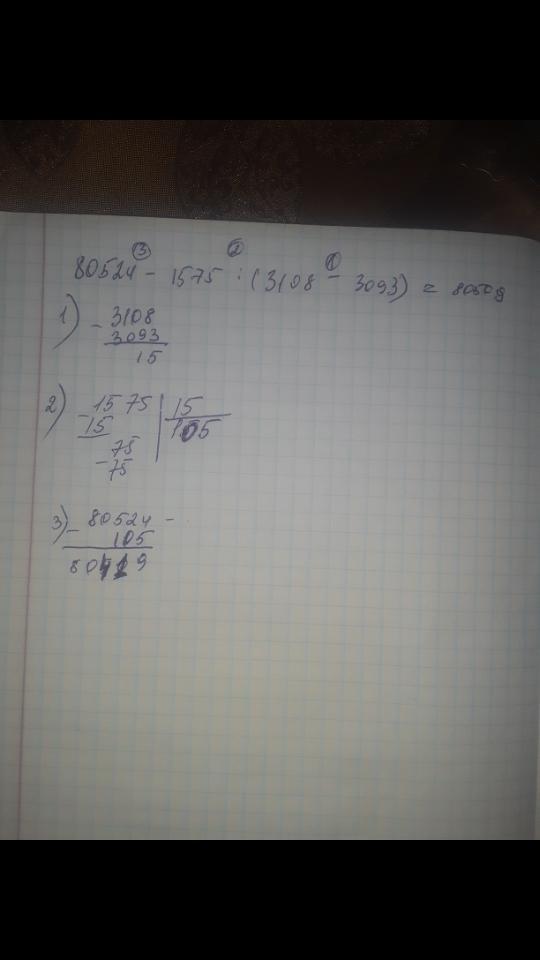 ③ ② ①
80524 - 1575 : (3108 - 3093) =
1) - 3108
3093
15
2) - 1575 | 15
15 105
75
- 75
3) - 80524 -
105
80419